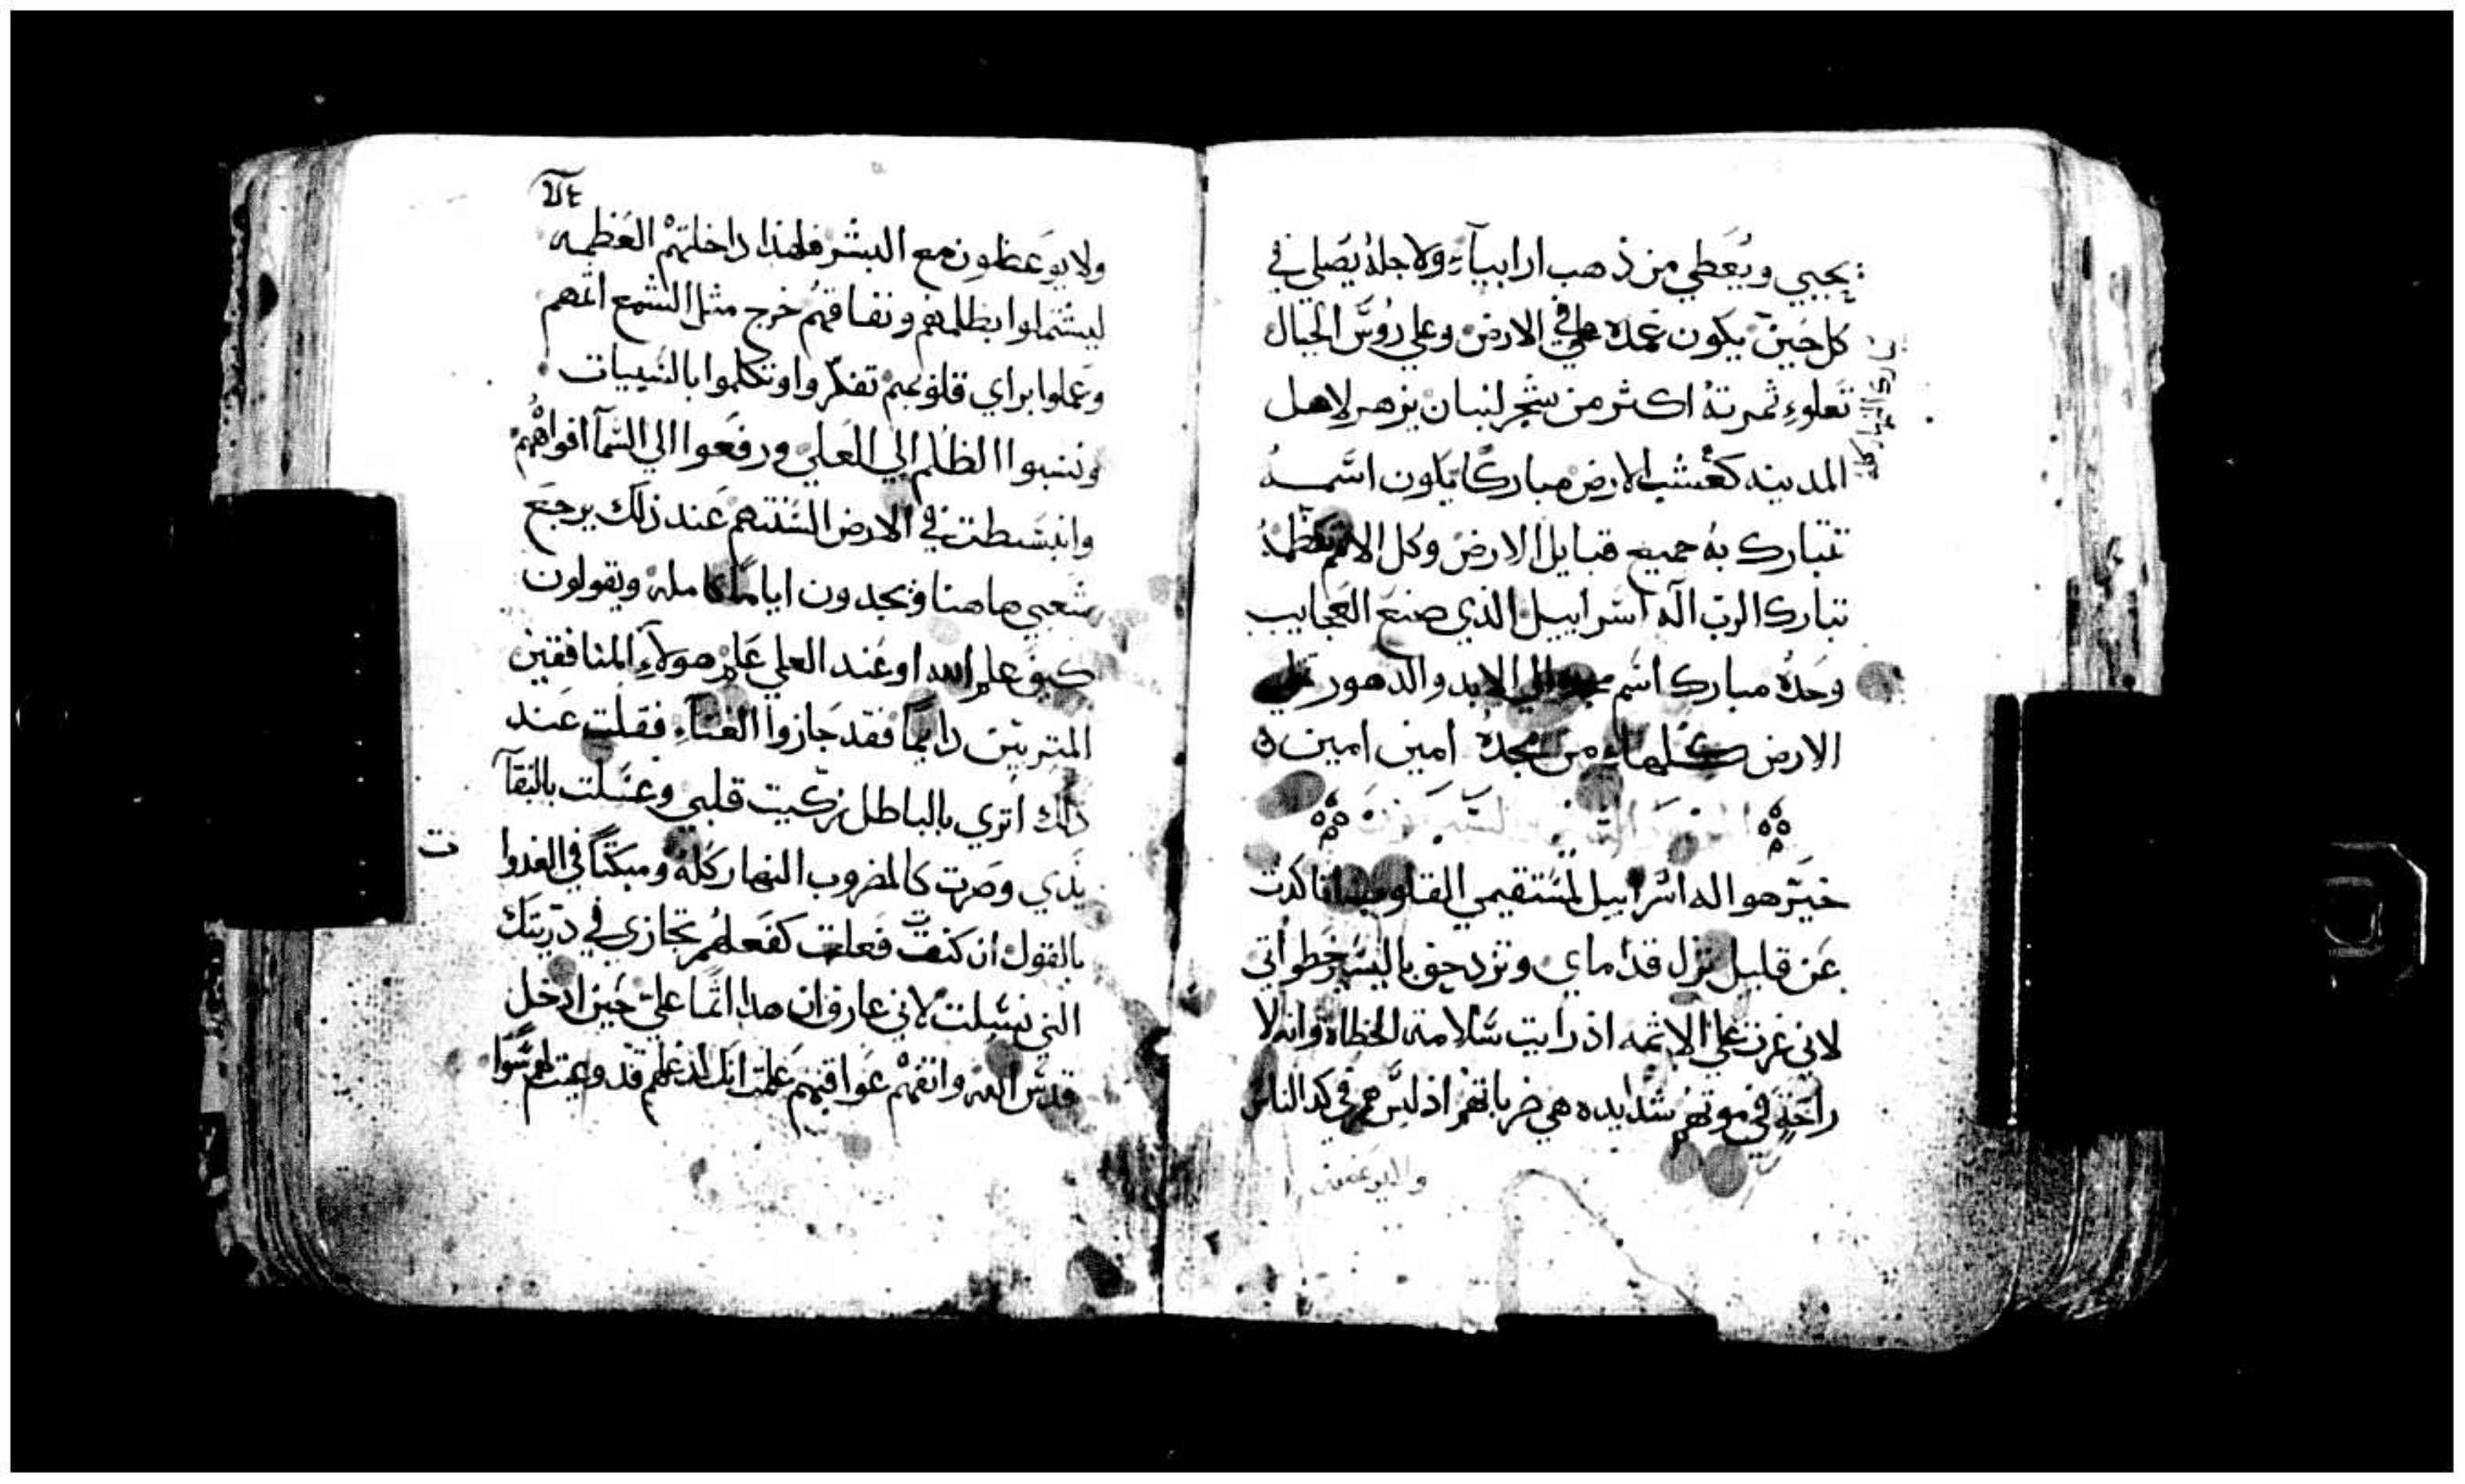 يحيي ويُعَطي من ذهب ارابيآء ولاجلهُ يصَلي في
كل حَين يكون عمده في الارض وعلي رُوسَ الجبال
تَعلوء ثمرتهُ اكثر من شجر لبنان يزهر لاهل
المدينه كعشب الارض مباركًا يكون اسَمهُ
تتبارك بهُ جميع قبايل الارض وكل الامم تعظمهُ
تبارك الربّ آله اسَراييل الذي صنع العَجايب
وحَدهُ مبارك اسَم مجده الي الابد والدهور
الارض كلها من مجدهُ امين امين ه
خيّر هو اله اسَراييل لمسَتقيمي القلوب انا كدت
عَن قليل تزل قدماي وتزدحق باليسَير خَطواتي
لاني غرت علي الاثمه اذ رايت سَلامة الخطاة وانه لا
راحَة في موتهم شدايده هي ضرباتهم اذ ليسَ هم في كد الناسَ
ولا يوعَظون مع البشر فلهذا داخلتهم العَظمه
ليشتملوا بظلمهم ونفاقهم خرج مثل الشمع اثمهم
وعَملوا براي قلوبهم تفكروا وتكلموا بالسَييات
ونسبوا الظلم الي العَلي ورفعَوا الي السَمآ افواههم
وانبسَطت في الارض السَنتهم عَند ذلك يرجَع
شعبي هاهنا ويجدون اياما كاملة ويقولون
كيف علم الله او عَند العلي عَلم هولآء المنافقين
المتربين دايمًا فقد جَازوا الغنآء فقلت عَند
ذلك اتري بالباطل زكيت قلبي وغسَلت بالنقآ
يدي وصَرت كالمضروب النهار كله ومبكتًا في الغدوا
ت
بالقول ان كنت فعلت كفعَلهم تجازي في ذريتك
التي نسَلت لاني عارف ان هذا اثما علي حَين ادخل
قدسَ الله وافهم عَواقبهم عَلمت انك لاغلهم قد وعيت لهم سَوا